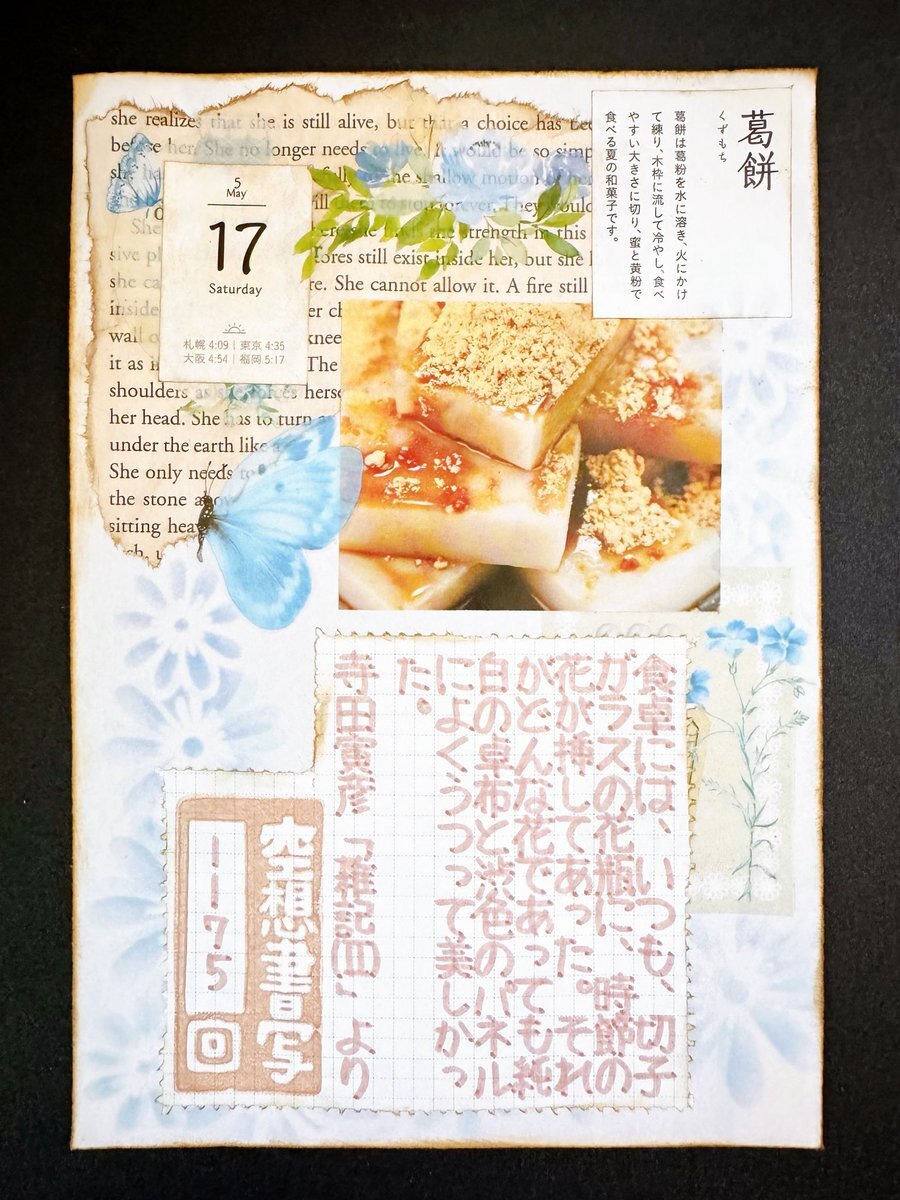 she realizes that she is still alive, but that a choice has
before her. She no longer needs to live. It would be so
the shallow motion of her
forever. They would
strength in this
sive
ores still exist inside her, but she
she ca
re. She cannot allow it. A fire still
inside
er
wall
knee
it as
The
shoulders as she forces herse
her head. She has to turn
under the earth like
She only needs to
the stone
sitting
5
May
17
Saturday
札幌 4:09 | 東京 4:35
大阪 4:54 | 福岡 5:17
葛餅
くずもち
葛餅は葛粉を水に溶き、火にかけ
て練り、木枠に流して冷やし、食べ
やすい大きさに切り、蜜と黄粉で
食べる夏の和菓子です。
食卓には、いつも、切子
ガラスの花瓶に、時節の
花が挿してあった。それ
がどんな花であっても純
白の卓布と渋色のパネル
によくうつって美しかっ
た。
寺田寅彦「雑記(Ⅲ)」より
空想書写
1175
回